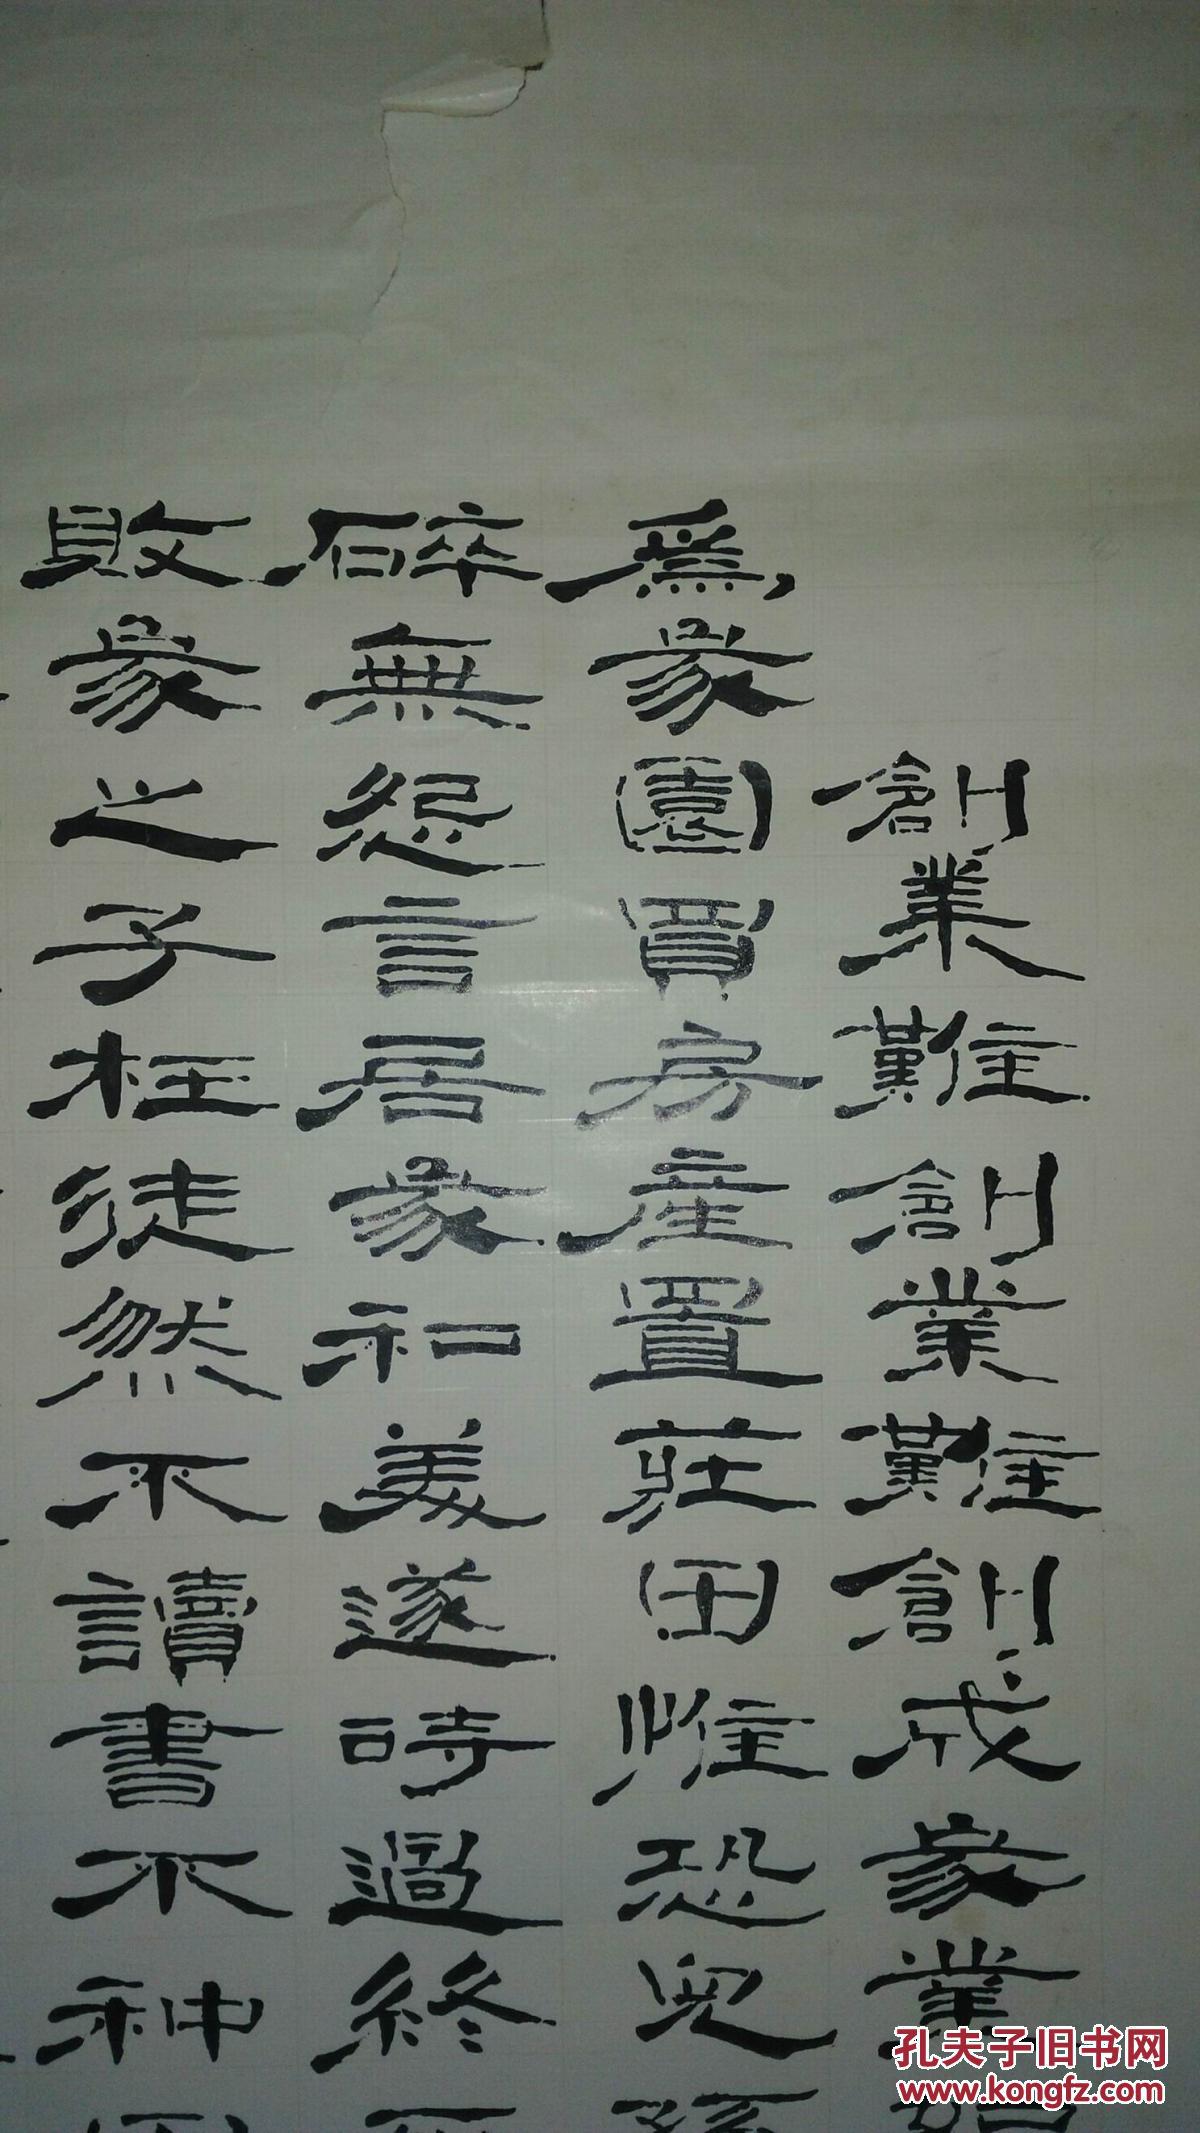 創業難創業難創成家業
為家園買房産置莊田惟恐兒孫
碎無怨言居家和美遂時過終
敗家之子枉徒然不讀書不种
孔夫子旧书网
www.kongfz.com